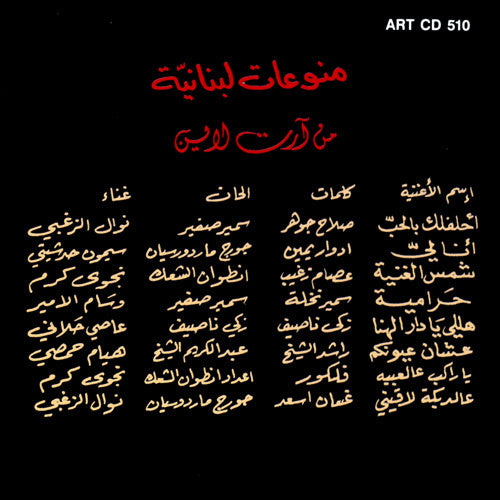 ART CD 510
منوعات لبنانيّة
من آرت لاين
إسم الأغنية كلمات الحان غناء
احلفلك بالحبّ صلاح جوهر سمير صفير نوال الزغبي
أنا ليّ ادوار يمين جورج ماردورسيان سيمون حدشيتي
شمس الغنية عصام زغيب انطوان الشعك نجوى كرم
حرامية سمير نخلة سمير صفير وسام الامير
هللي يا دار الهنا زكي ناصيف زكي ناصيف عاصي حلاني
عشان عيونكم راشد الشيخ عبد الكريم الشيخ هيام حمصي
يا راكب عالعبيه فلكلور اعداد انطوان الشعك نجوى كرم
عالدبكة لاقيني غسان اسعد جورج ماردورسيان نوال الزغبي